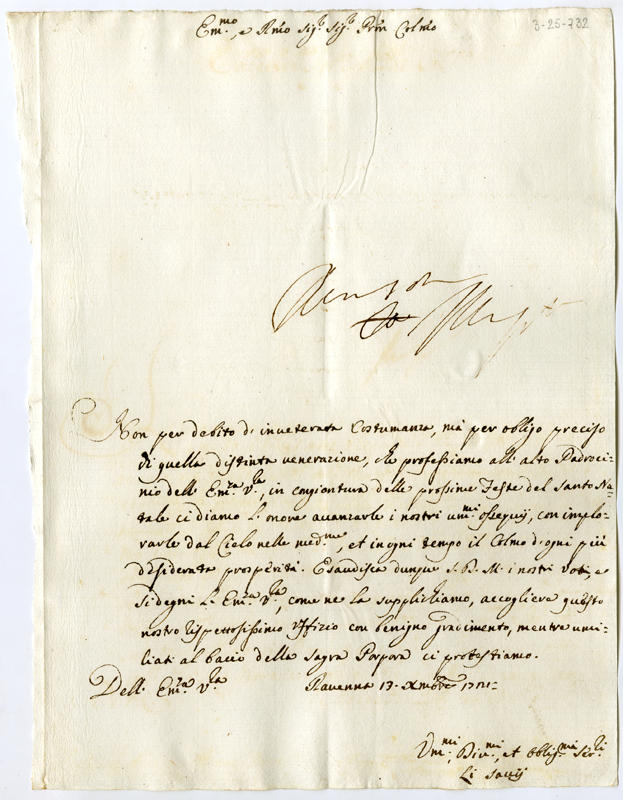 Em.mo, e Rmo Sig.e Sig.e Prôn Colmo
3-25-732
Non per debito di inveterata Costumanza, mà per obligo preciso
di quella distinta venerazione, che professiamo all' alto Padroci=
nio dell' Em.za V.ra, in congiontura delle prossime Feste del Santo Na=
tale ci diamo l' onore avanzarle i nostri um.mi ossequij, con implo=
rarle dal Cielo nelle med.me, et in ogni tempo il Colmo d' ogni più
desiderata prosperità. Esaudisca dunque S. D. M. i nostri voti, e
si degni l' Em.za V.ra, come ne la supplichiamo, accogliere questo
nostro rispettosissimo Uffizio con benigno gradimento, mentre umi=
liati al bacio della Sagra Porpora ci protestiamo.
Dell' Em.za V.ra Ravenna 13. Xmbre
Um.mi Div.mi, et oblig.mi Ser.ri
Li Savij